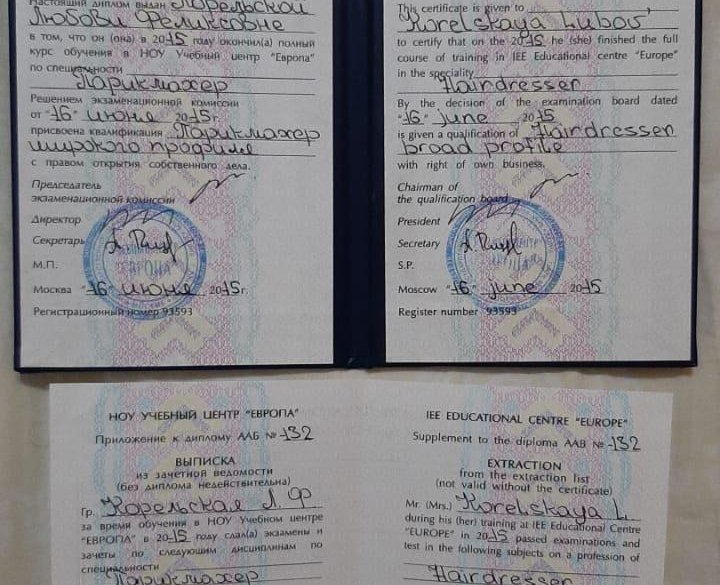 Настоящий диплом выдан Корельской
Любови Феликсовне
в том, что он (она) в 2015 году окончил(а) полный
курс обучения в НОУ Учебный центр "Европа"
по специальности
Парикмахер
Решением экзаменационной комиссии
от "16" июня 2015г.
присвоена квалификация Парикмахер
широкого профиля
с правом открытия собственного дела.
Председатель
экзаменационной комиссии
Директор
Секретарь
М.П.
Москва "16" июня 2015г.
Регистрационный номер 93593
This certificate is given to
Korelskaya Lubov'
to certify that on the 2015 he (she) finished the full
course of training in IEE Educational centre "Europe"
in the speciality
Hairdresser
By the decision of the examination board dated
"16" june 2015
is given a qualification of Hairdresser
broad profile
with right of own business.
Chairman of
the qualification board
President
Secretary
S.P.
Moscow "16" june 2015
Register number 93593
НОУ УЧЕБНЫЙ ЦЕНТР "ЕВРОПА"
Приложение к диплому ААБ № 132
ВЫПИСКА
из зачетной ведомости
(без диплома недействительна)
Гр. Корельская Л. Ф
за время обучения в НОУ Учебном центре
"ЕВРОПА" в 2015 году сдал(а) экзамены и
зачеты по следующим дисциплинам по
специальности
Парикмахер
IEE EDUCATIONAL CENTRE "EUROPE"
Supplement to the diploma AAB № 132
EXTRACTION
from the extraction list
(not valid without the certificate)
Mr. (Mrs.) Korelskaya L.
during his (her) training at IEE Educational Centre
"EUROPE" in 2015 passed examinations and
test in the following subjects on a profession of
Hairdresser